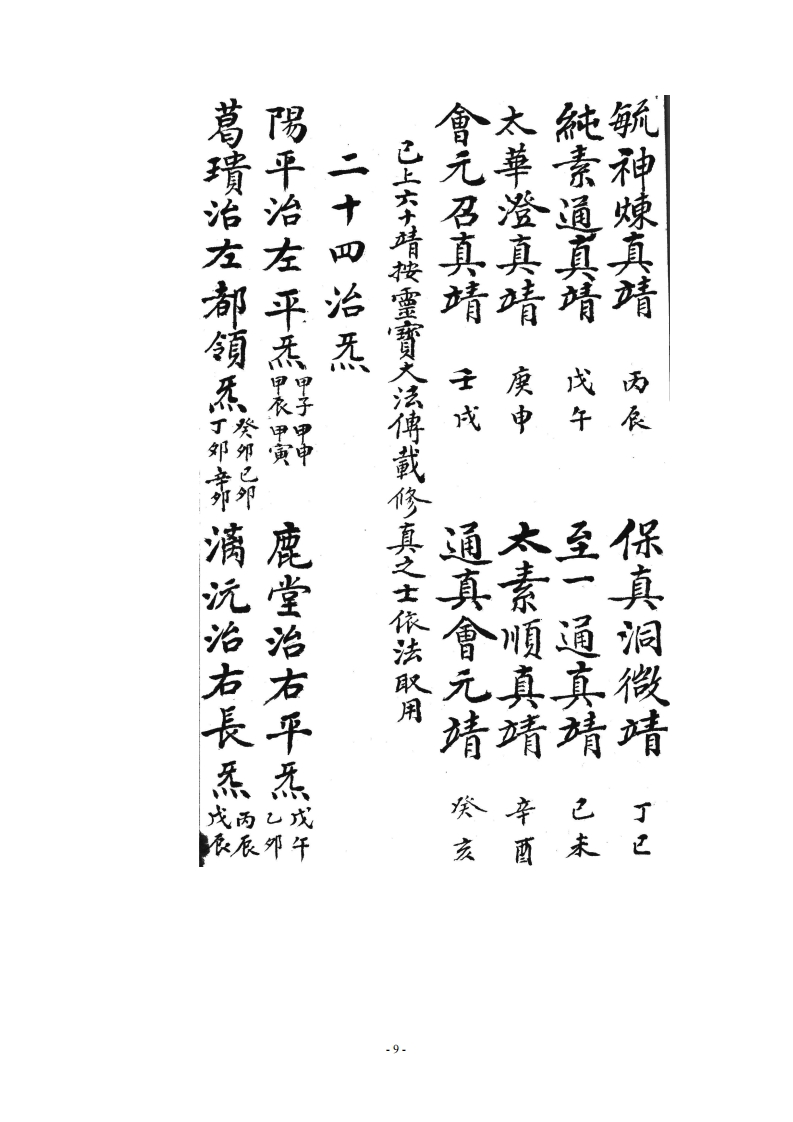 毓神煉真靖 丙辰 保真洞微靖 丁巳
純素通真靖 戊午 至一通真靖 己未
太華澄真靖 庚申 太素順真靖 辛酉
會元召真靖 壬戌 通真會元靖 癸亥
已上六十靖按靈寶大法傳載修真之士依法取用
二十四治炁
陽平治左平炁 甲子甲申 甲辰甲寅 鹿堂治右平炁 戊午 乙卯
葛璝治左都領炁 癸卯己卯 丁卯辛卯 漓沅治右長炁 丙辰 戊辰
- 9 -